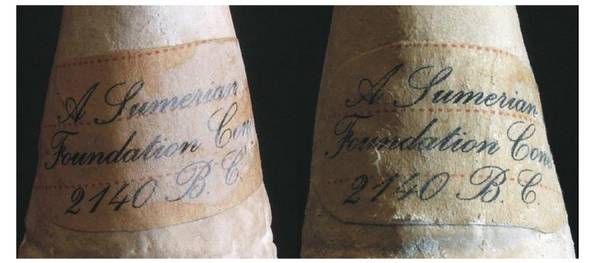 A Sumerian
Foundation Cone
2140 B.C.
A Sumerian
Foundation Cone
2140 B.C.